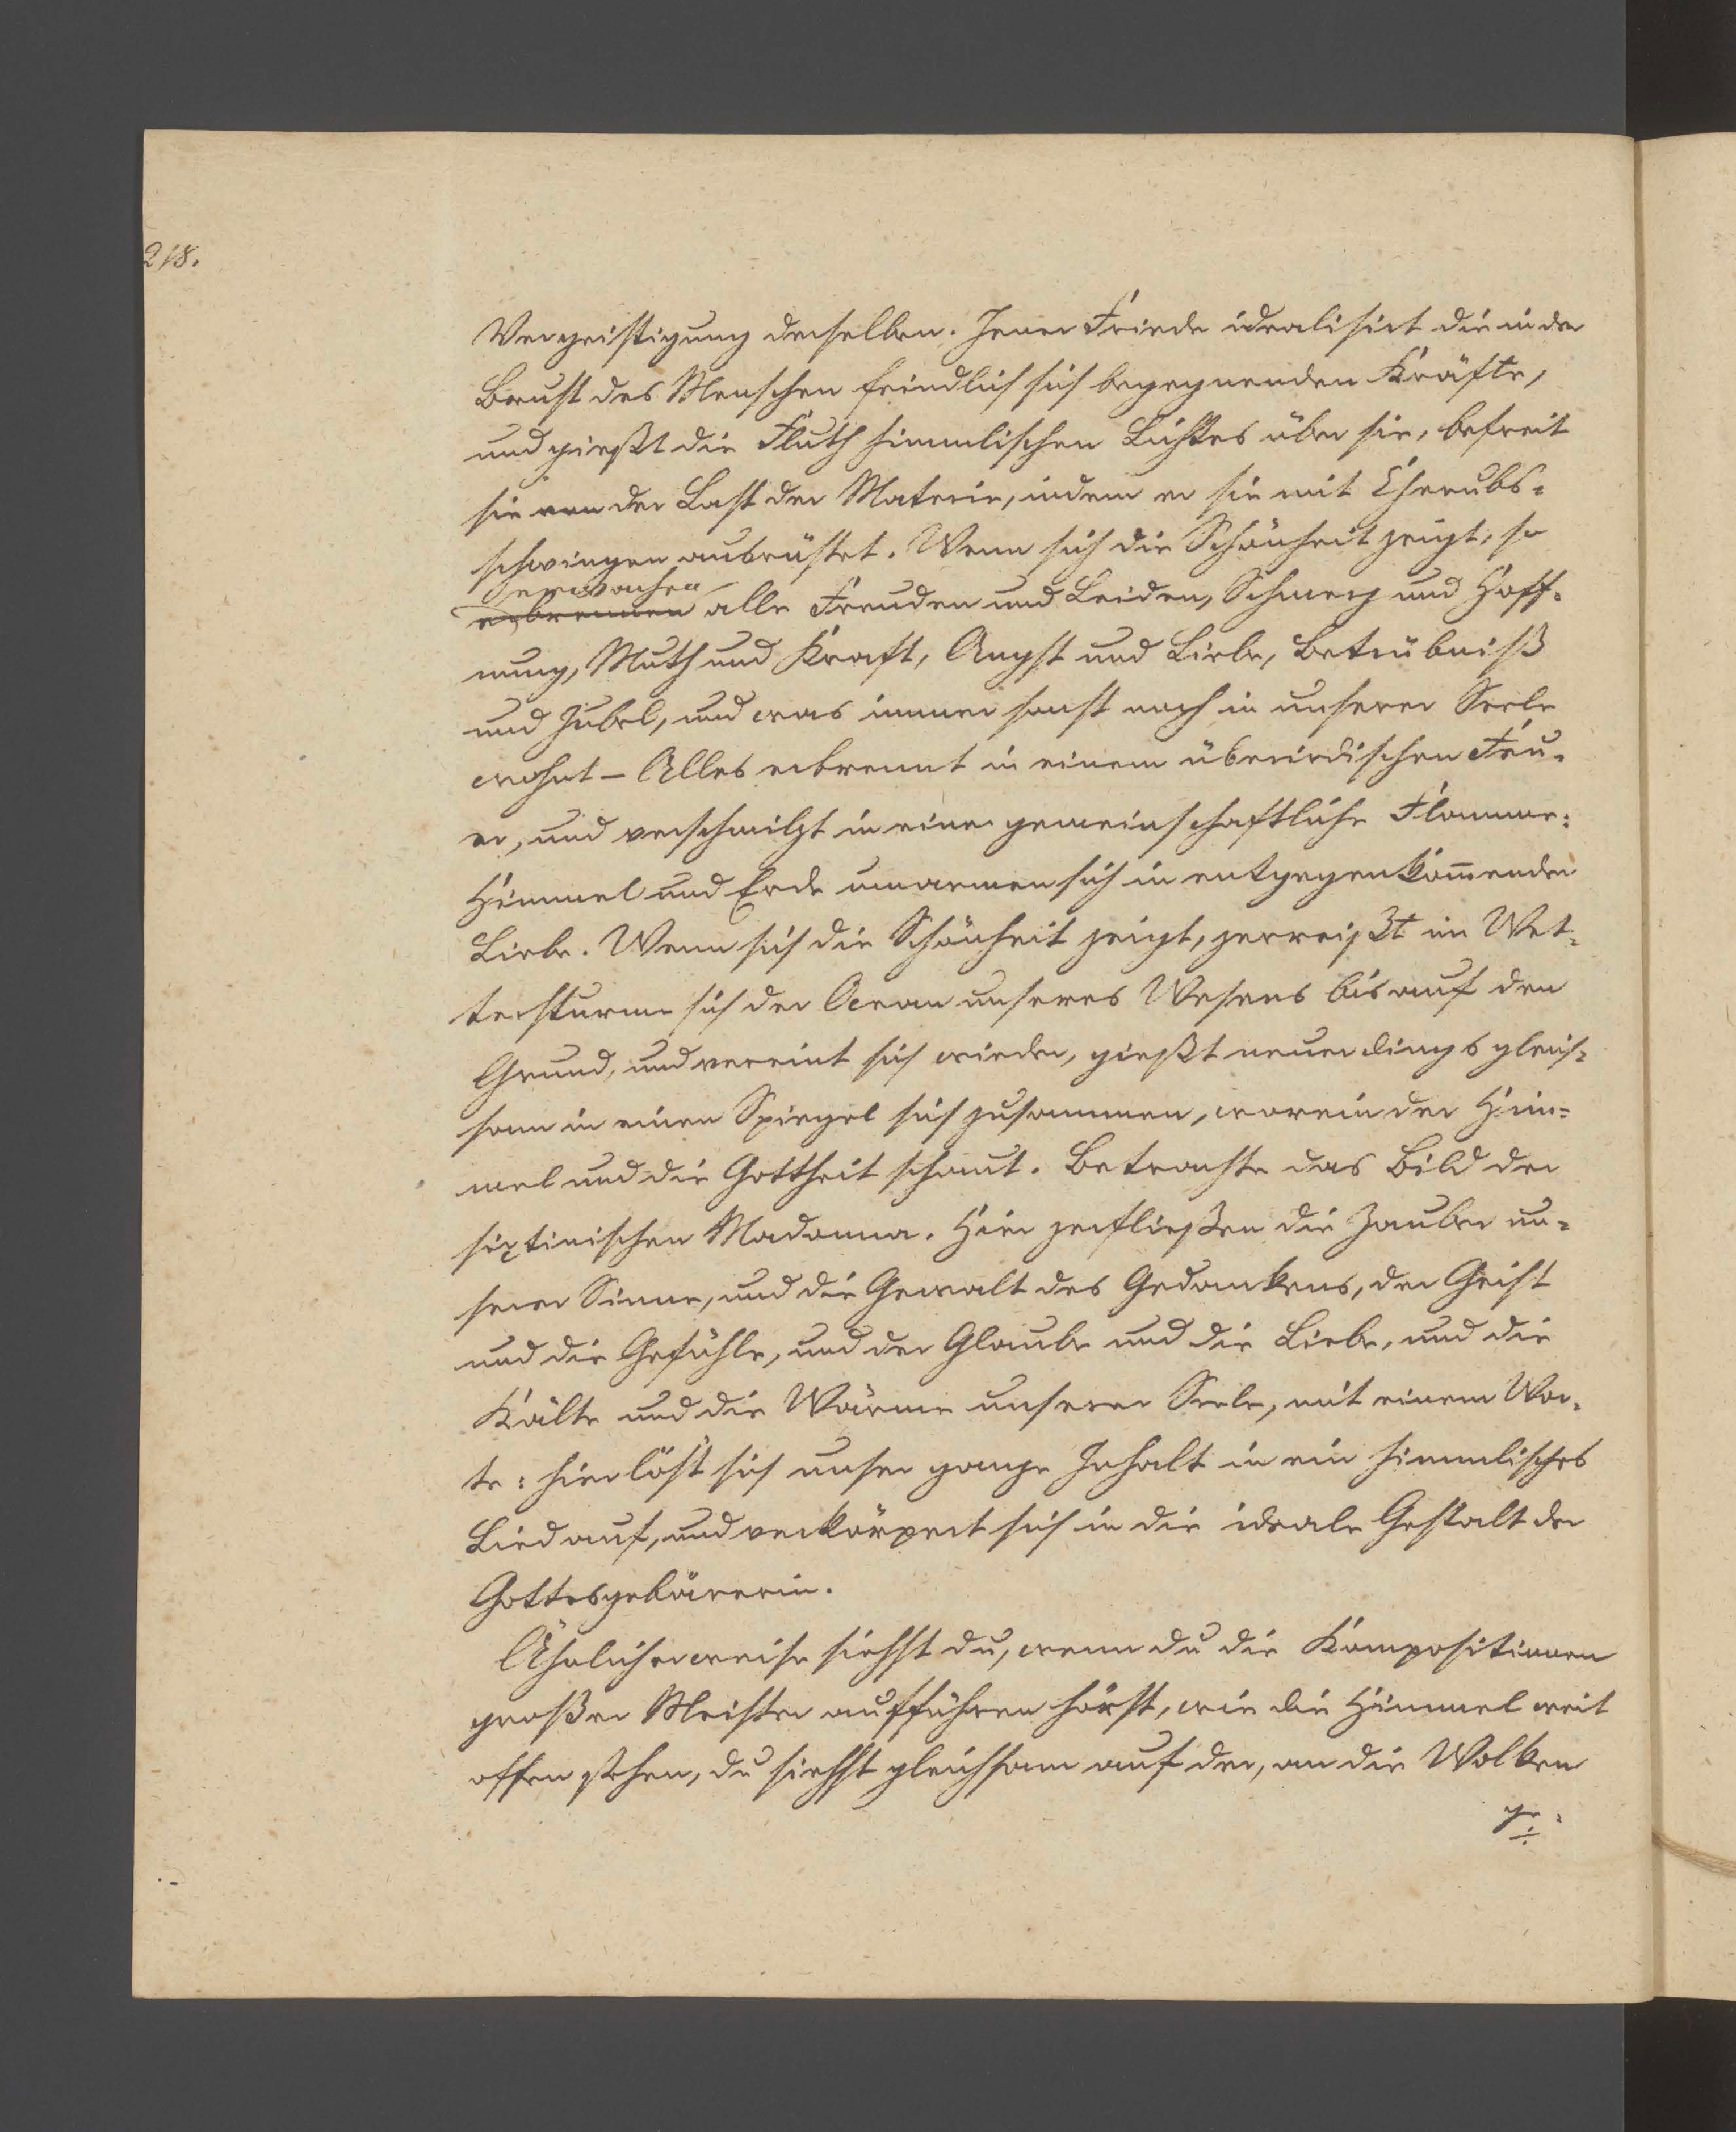 218.
Vergeistigung derselben. Jener Friede idealisirt die in der
Brust des Menschen feindlich sich begegnenden Kräfte,
und gießt die Fluth himmlischen Lichtes über sie, befreit
sie von der Last der Materie, indem er sie mit Cherubs-
schwingen ausrüstet. Wenn sich die Schönheit zeigt, so
erwachen
erbrennen alle Freuden und Leiden, Schmerz und Hoff-
nung, Muth und Kraft, Angst und Liebe, Betrübniß
und Jubel, und was immer sonst noch in unserer Seele
wohnt – Alles erbrennt in einem überirdischen Feu-
er, und verschmilzt in eine gemeinschaftliche Flamme:
Himmel und Erde umarmen sich in entgegenkom̄ender
Liebe. Wenn sich die Schönheit zeigt, zerreißt im Wet-
tersturme sich der Ocean unseres Wesens bis auf den
Grund, und vereint sich wieder, gießt neuerdings gleich-
sam in einen Spiegel sich zusammen, worein der Him-
mel und die Gottheit schaut. Betrachte das Bild der
sixtinischen Madonna. Hier zerfließen die Zauber un-
serer Sinne, und die Gewalt des Gedankens, der Geist
und die Gefühle, und der Glaube und die Liebe, und die
Kälte und die Wärme unserer Seele, mit einem Wor-
te: hier löst sich unser ganze Inhalt in ein himmlisches
Lied auf, und verkörpert sich in die ideale Gestalt der
Gottesgebärerin.
Ähnlicherweise siehst du, wenn du die Kompositionen
großer Meister aufführen hörst, wie die Himmel weit
offen stehen, du siehst gleichsam auf der, an die Wolken
ge-